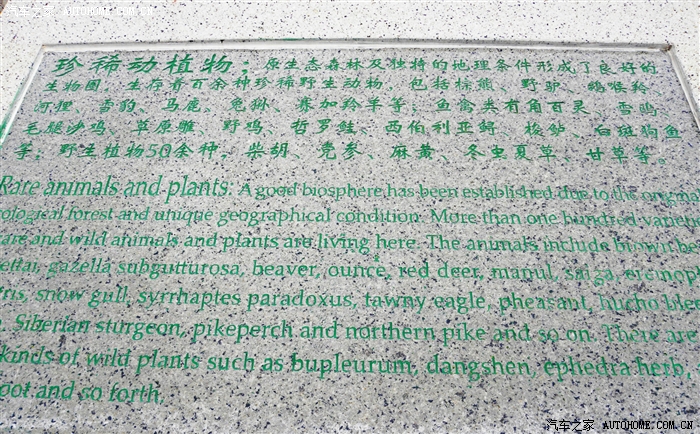 汽车之家 AUTOHOME.COM.CN
珍稀动植物：原生态森林及独特的地理条件形成了良好的
生物圈，生存着百余种珍稀野生动物，包括棕熊、野驴、鹅喉羚
河狸、雪豹、马鹿、兔狲、赛加羚羊等，鱼禽类有角百灵、雪鸥
毛腿沙鸡、草原雕、野鸡、哲罗鲑、西伯利亚鲟、梭鲈、白斑狗鱼
等；野生植物50余种，柴胡、党参、麻黄、冬虫夏草、甘草等。
Rare animals and plants: A good biosphere has been established due to the origina
cological forest and unique geographical condition. More than one hundred varieti
are and wild animals and plants are living here. The animals include brown be
ettai, gazella subgutturosa, beaver, ounce, red deer, manul, saiga, eremop
tris, snow gull, syrrhaptes paradoxus, tawny eagle, pheasant, hucho ble
Siberian sturgeon, pikeperch and northern pike and so on. There are
kinds of wild plants such as bupleurum, dangshen, ephedra herb,
oot and so forth.
汽车之家 AUTOHOME.COM.CN